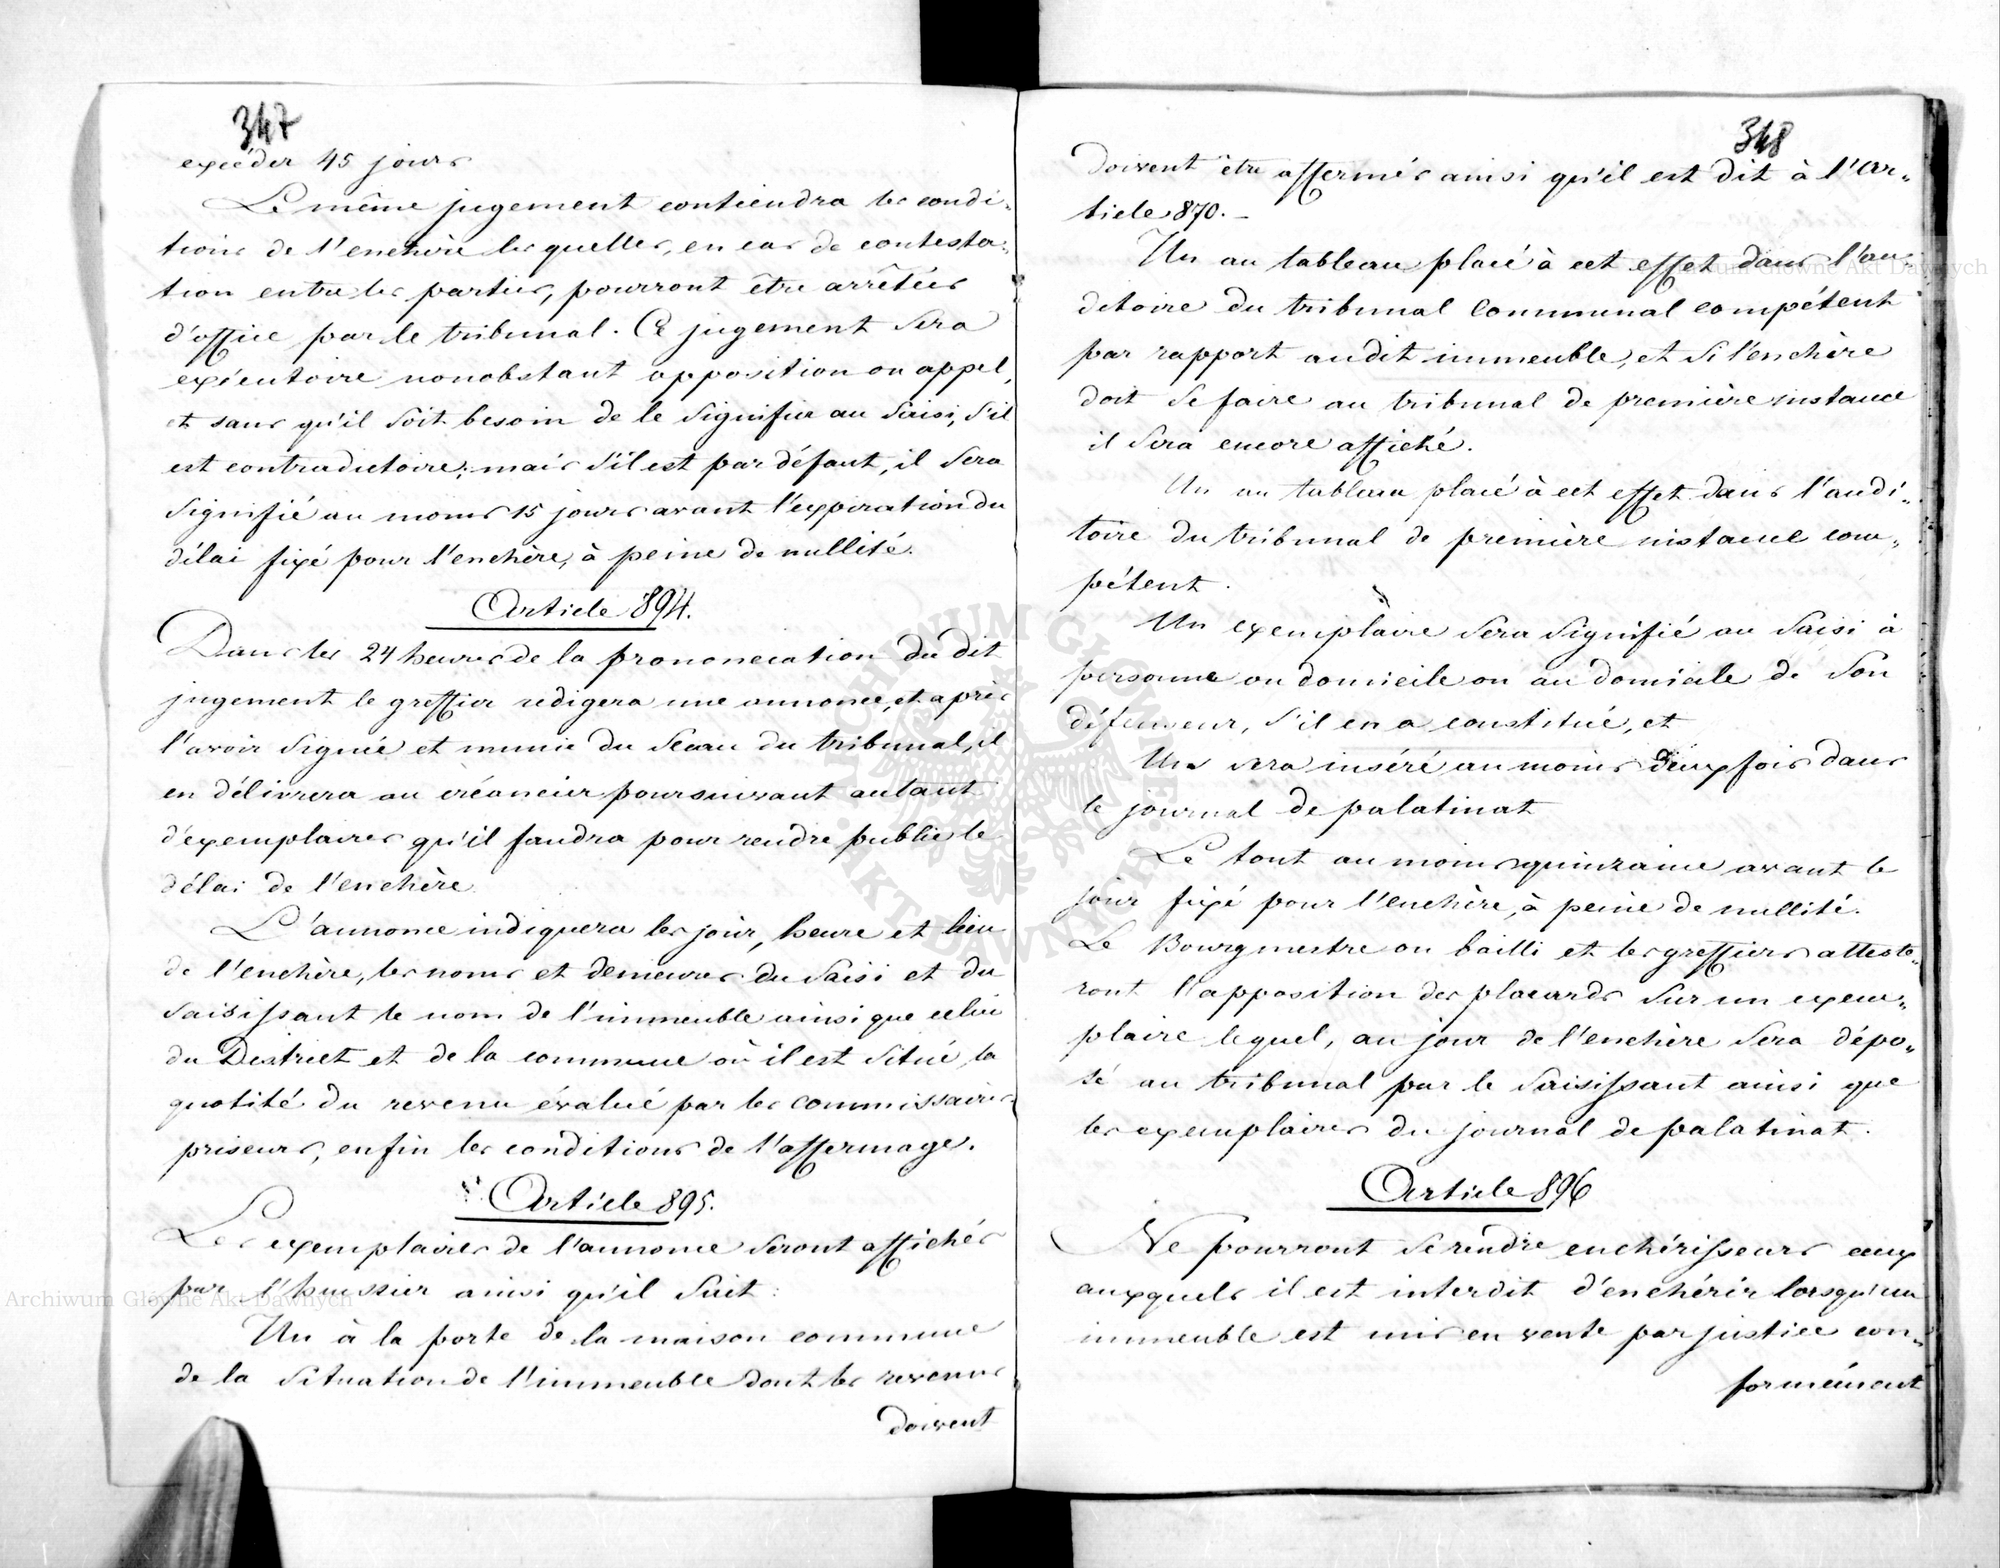 347
excéder 45 jours
Le même jugement contiendra les condi-
tions de l'enchère lesquelles, en cas de contesta-
tion entre les parties, pourront être arrêtées
d'office par le tribunal. Ce jugement sera
exécutoire nonobstant opposition ou appel,
et sans qu'il soit besoin de le signifier au saisi, s'il
est contradictoire; mais s'il est par défaut, il sera
signifié au moins 15 jours avant l'expiration du
délai fixé pour l'enchère, à peine de nullité.
Article 894.
Dans les 24 heures de la prononciation du dit
jugement le greffier redigera une annonce, et après
l'avoir signée et munie du sceau du tribunal, il
en délivrera au créancier poursuivant autant
d'exemplaires qu'il faudra pour rendre public le
délai de l'enchère.
L'annonce indiquera les jour, heure et lieu
de l'enchère, les noms et demeures du saisi et du
saisissant le nom de l'immeuble ainsi que celui
du District et de la commune où il est situé, la
quotité du revenu évalué par les commissaires
priseurs, enfin les conditions de l'affermage.
Article 895.
Les exemplaires de l'annonce seront affichés
par l'huissier ainsi qu'il suit:
Un à la porte de la maison commune
de la situation de l'immeuble dont les revenus
doivent
348
doivent être affermés ainsi qu'il est dit à l'ar-
ticle 870. -
Un au tableau placé à cet effet dans l'au-
ditoire du tribunal communal compétent
par rapport audit immeuble, et si l'enchère
doit se faire au tribunal de première instance
il sera encore affiché.
Un au tableau placé à cet effet dans l'audi-
toire du tribunal de première instance com-
pétent.
Un exemplaire sera signifié au saisi à
personne ou domicile ou au domicile de son
défenseur, s'il en a constitué, et
Un sera inséré au moins deux fois dans
le journal de palatinat
Le tout au moins quinzaine avant le
jour fixé pour l'enchère, à peine de nullité.
Le Bourgmestre ou bailli et les greffiers atteste-
ront l'apposition des placards sur un exem-
plaire lequel, au jour de l'enchère sera dépo-
sé au tribunal par le saisissant ainsi que
les exemplaires du journal de palatinat.
Article 896
Ne pourront se rendre enchérisseurs ceux
auxquels il est interdit d'enchérir lorsqu'un
immeuble est mis en vente par justice con-
formément
Archiwum Główne Akt Dawnych
Archiwum Główne Akt Dawnych
ARCHIWUM GŁÓWNE AKT DAWNYCH